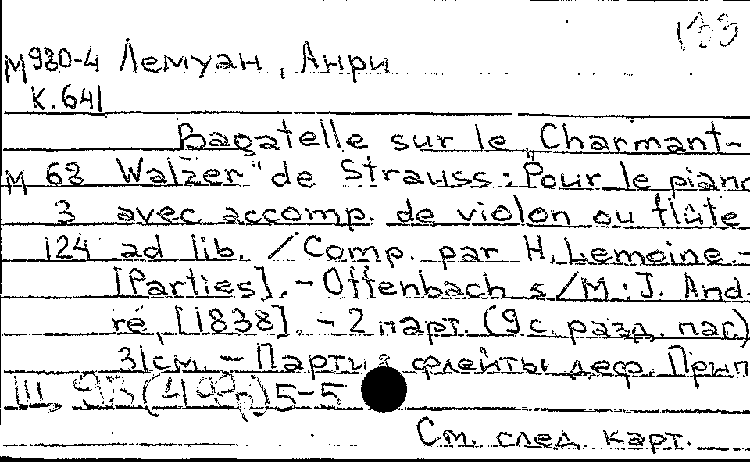 133
М980-4 Лемуан, Анри
К.641
Bagatelle sur le „Charmant-
М 68 Walzer" de Strauss: Pour le piano
3 avec accomp. de violon ou flûte
124 ad lib. / Comp. par H. Lemoine. -
[Parties]. - Offenbach s/M: J. And-
ré, [1838]. - 2 парт. (9 с. разд. паг)
31см. - Партия флейты деф. Прип
III 93 5-5
См. след. карт.